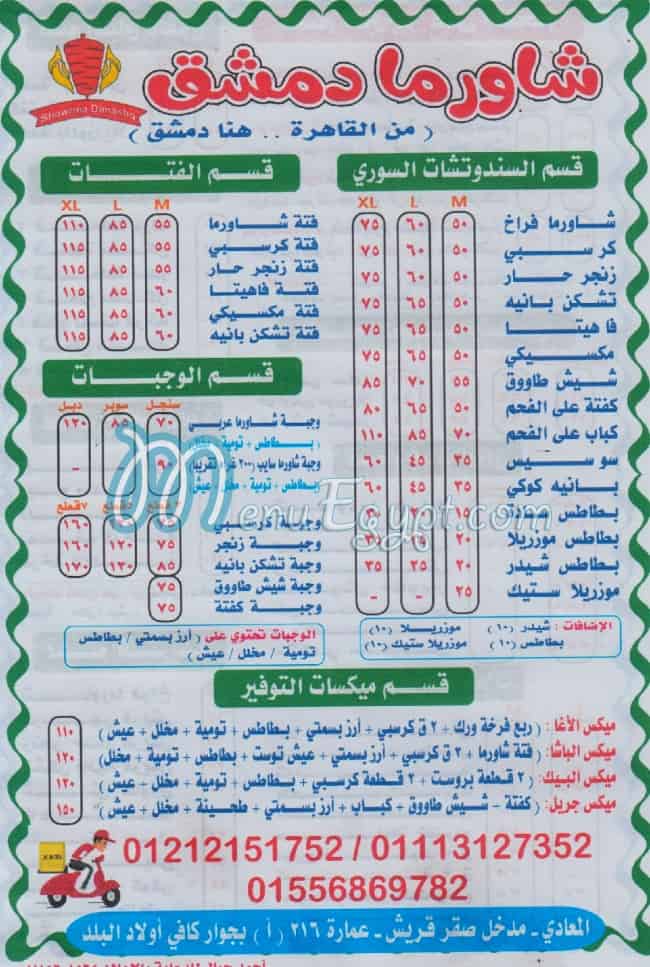 شاورما دمشق
Shawrma Dimashq
( من القاهرة .. هنا دمشق )
قسم السندوتشات السوري
M L XL
شاورما فراخ ٥٠ ٦٠ ٧٥
كرسبي ٥٠ ٦٠ ٧٥
زنجر حار ٥٠ ٦٠ ٧٥
تشكن بانيه ٥٠ ٦٥ ٧٥
فاهيتا ٥٠ ٦٥ ٧٥
مكسيكي ٥٠ ٦٥ ٧٥
شيش طاووق ٥٥ ٧٠ ٨٥
كفتة على الفحم ٥٠ ٦٥ ٨٠
كباب على الفحم ٧٠ ٨٥ ١١٠
سوسيس ٣٥ ٤٥ ٦٠
بانيه كوكي ٣٥ ٤٥ ٦٠
بطاطس سادة
بطاطس موزريلا
بطاطس شيدر ٢٠ ٢٥ ٣٥
موزريلا ستيك ٢٥ - -
الإضافات : شيدر (١٠) موزريلا (١٠)
بطاطس (١٠) موزريلا ستيك (١٠)
قسم الفتات
M L XL
فتة شاورما ٥٥ ٨٥ ١١٠
فتة كرسبي ٥٥ ٨٥ ١١٥
فتة زنجر حار ٥٥ ٨٥ ١١٥
فتة فاهيتا ٦٠ ٨٥ ١١٥
فتة مكسيكي ٦٠ ٨٥ ١١٥
فتة تشكن بانيه ٦٠ ٨٥ ١١٥
قسم الوجبات
سنجل سوبر دبل
وجبة شاورما عربي ٧٠ ٨٥ ١٢٠
( بطاطس + تومية + مخلل )
وجبة شاورما سايب (٢٠٠ غرام تقريبا) ٩٠ - -
( بطاطس + تومية + مخلل + عيش )
٧قطع
وجبة كرسبي ١٦٠
وجبة زنجر ٧٥ ١٢٠ ١٦٠
وجبة تشكن بانيه ٨٥ ١٣٠ ١٧٠
وجبة شيش طاووق ٧٥
وجبة كفتة ٧٥
الوجبات تحتوي على ( أرز بسمتي / بطاطس
تومية / مخلل / عيش )
قسم ميكسات التوفير
ميكس الأغا : ( ربع فرخة ورك + ٢ ق كرسبي + أرز بسمتي + بطاطس + تومية + مخلل + عيش ) ١١٠
ميكس الباشا: ( فتة شاورما + ٢ ق كرسبي + أرز بسمتي + عيش توست + بطاطس + تومية + مخلل ) ١٢٠
ميكس البيك: ( ٢ قطعة بروست + ٢ قطعة كرسبي + بطاطس + تومية + مخلل + عيش ) ١٢٠
ميكس جريل: ( كفتة - شيش طاووق + كباب + أرز بسمتي + طحينة + مخلل + عيش ) ١٥٠
01212151752 / 01113127352
01556869782
المعادي - مدخل صقر قريش - عمارة ٢١٦ ( أ ) بجوار كافي أولاد البلد
MenuEgypt.com